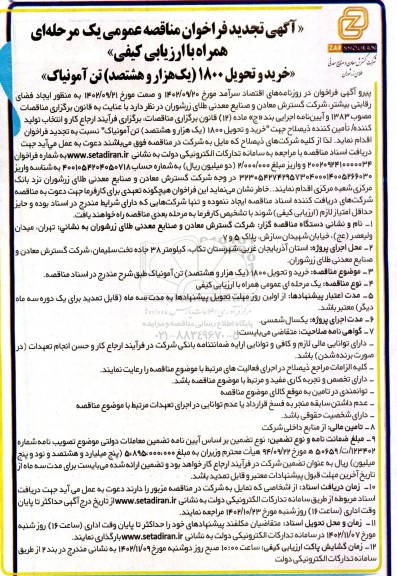 ZAR SHOURAN
شرکت گسترش معادن و صنایع معدنی
طلای زرشوران
«آگهی تجدید فراخوان مناقصه عمومی یک مرحله‌ای
همراه با ارزیابی کیفی»
«خرید و تحویل ۱۸۰۰ (یک‌هزار و هشتصد) تن آمونیاک»
پیرو آگهی فراخوان در روزنامه‌های اقتصاد سرآمد مورخ ۱۴۰۲/۰۹/۲۰ و صمت مورخ ۱۴۰۲/۰۹/۲۱ به منظور ایجاد فضای
رقابتی بیشتر، شرکت گسترش معادن و صنایع معدنی طلای زرشوران در نظر دارد با عنایت به قانون برگزاری مناقصات
مصوب ۱۳۸۳ و آیین‌نامه اجرایی بند «ج» ماده (۱۲) قانون برگزاری مناقصات، برگزاری فرآیند ارجاع کار و انتخاب تولید
کننده/ تأمین کننده ذیصلاح جهت "خرید و تحویل ۱۸۰۰ (یک هزار و هشتصد) تن آمونیاک" نسبت به تجدید فراخوان
اقدام نمایند. لذا از کلیه شرکت‌های ذیصلاح که مایل به شرکت در مناقصه فوق می‌باشند دعوت به عمل می‌آید جهت
دریافت اسناد مناقصه با مراجعه به سامانه تدارکات الکترونیکی دولت به نشانی www.setadiran.ir به شماره فراخوان
و واریز مبلغ ۲/۰۰۰/۰۰۰ (دو میلیون ریال) به شماره حساب
در وجه شرکت گسترش معادن و صنایع معدنی طلای زرشوران نزد بانک
مرکزی شعبه مرکزی اقدام نمایند. خاطر نشان می‌نماید این فراخوان هیچگونه تعهدی برای کارفرما جهت دعوت به مناقصه
شرکت‌های دریافت کننده اسناد مناقصه ایجاد ننموده و تنها شرکت‌هایی که دارای شرایط مندرج در اسناد بوده و حایز
حداقل امتیاز لازم (ارزیابی کیفی) شوند با تشخیص کارفرما به مرحله بعدی مناقصه راه خواهند یافت.
۱ـ نام و نشانی دستگاه مناقصه گزار: شرکت گسترش معادن و صنایع معدنی طلای زرشوران به نشانی: تهران، میدان
ولیعصر (عج)، خیابان شهیدان سازش، پلاک ۵ و ۷
۲ـ محل اجرای پروژه: استان آذربایجان غربی، شهرستان تکاب، کیلومتر ۳۸ جاده تخت سلیمان، شرکت گسترش معادن و
صنایع معدنی طلای زرشوران.
۳ـ موضوع مناقصه: خرید و تحویل ۱۸۰۰ (یک هزار و هشتصد) تن آمونیاک طبق شرح مندرج در اسناد مناقصه.
۴ـ نوع مناقصه: یک مرحله ای عمومی همراه با ارزیابی کیفی
۵ـ مدت اعتبار پیشنهادها: از اولین روز مهلت تحویل پیشنهادها به مدت سه ماه (قابل تمدید برای یک دوره سه ماه
دیگر) معتبر باشد.
۶ـ مدت اجرای پروژه: یکسال شمسی
۷ـ گواهی نامه صلاحیت: متقاضی می‌بایست:
ـ دارای توانایی مالی لازم و کافی و توانایی ارایه ضمانتنامه بانکی شرکت در فرآیند ارجاع کار و حسن انجام تعهدات (در
صورت برنده شدن) باشد.
ـ کلیه الزامات مراجع ذیصلاح در اجرای فعالیت های مرتبط با موضوع مناقصه را رعایت نمایند.
ـ دارای تخصص و تجربه کاری مفید و مرتبط با موضوع مناقصه باشد.
ـ توانمندی در تامین به موقع کالای موضوع مناقصه
ـ عدم داشتن سابقه منجر به فسخ قرارداد یا عدم توانایی در اجرای تعهدات مرتبط با موضوع مناقصه
ـ دارای شخصیت حقوقی باشد.
۸ـ تامین مالی: از منابع داخلی شرکت
۹ـ مبلغ ضمانت نامه و نوع تضمین: نوع تضمین بر اساس آیین نامه تضمین معاملات دولتی موضوع تصویب نامه شماره
۱۲۳۴۰۲/ت۵۰۶۵۹ ه مورخ ۹۴/۰۹/۲۲ هیأت محترم وزیران به مبلغ ۵،۸۹۵،۰۰۰،۰۰۰ (پنج میلیارد و هشتصد و نود و پنج
میلیون) ریال به عنوان تضمین شرکت در فرآیند ارجاع کار خواهد بود و تضمین ارائه شده می‌بایست برای مدت سه ماه از
تاریخ آخرین مهلت قبول پیشنهادات معتبر و قابل تمدید باشد.
۱۰ـ زمان دریافت اسناد: از اشخاصی که تمایل به شرکت در مناقصه مزبور را دارند دعوت به عمل می آید جهت دریافت
اسناد مربوطه از طریق سامانه تدارکات الکترونیکی دولت به نشانی www.setadiran.ir از تاریخ درج آگهی حداکثر تا پایان
وقت اداری (ساعت ۱۶) روز شنبه مورخ ۱۴۰۲/۱۰/۲۳ مراجعه نمایند.
۱۱ـ زمان و محل تحویل اسناد: متقاضیان مکلفند پیشنهادهای خود را حداکثر تا پایان وقت اداری (ساعت ۱۶) روز شنبه
مورخ ۱۴۰۲/۱۱/۰۷ در سامانه تدارکات الکترونیکی دولت به نشانی www.setadiran.ir بارگذاری نمایند.
۱۲ـ زمان گشایش پاکت ارزیابی کیفی: ساعت ۱۰:۰۰ صبح روز دوشنبه مورخ ۱۴۰۲/۱۱/۰۹ به نشانی مندرج در بند ۲ از طریق
سامانه تدارکات الکترونیکی دولت